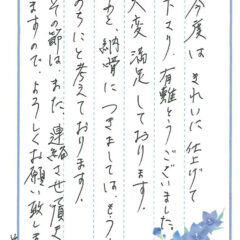 今度は きれいに 仕上げて
下さり、有難とうございました。
大変満足しております。
納骨につきましては、もう
のちにと考えております。
その節は また、連絡させて頂
ますので、よろしくお願い致しま